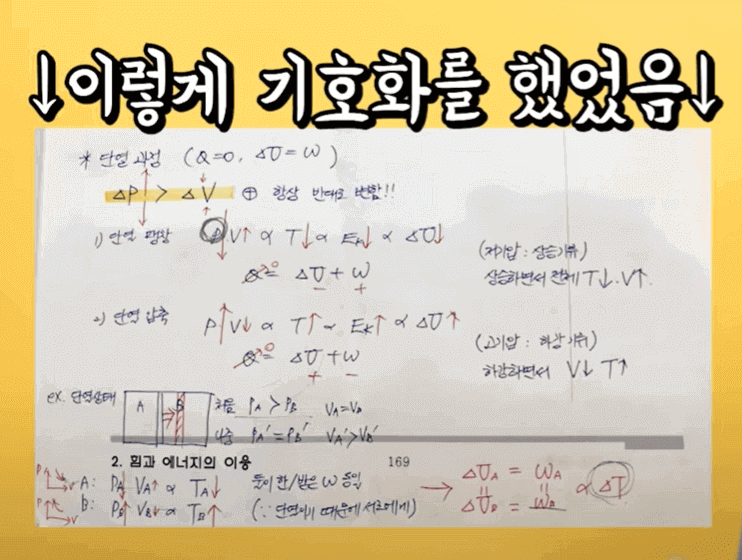 ↓이렇게 기호화를 했었음↓
* 단열 과정 (Q=0, ΔU=W)
ΔP > ΔV ⊕ 항상 반대로 변함!!
1) 단열 팽창 P↓V↑ ∝ T↓ ∝ Ek↓ ∝ ΔU↓
(저기압 : 상승기류)
상승하면서 전체 T↓. V↑.
Q=0 ΔU + W
- +
2) 단열 압축 P↑V↓ ∝ T↑ ∝ Ek↑ ∝ ΔU↑
(고기압 : 하강기류)
하강하면서 V↓ T↑
Q=0 ΔU + W
+ -
ex. 단열상태 A B 처음 PA > PB VA=VB
나중 PA'=PB' VA'>VB'
2. 힘과 에너지의 이용 169
P V A: PA↓ VA↑ ∝ TA↓ 둘이 한/받은 W 동일
P V B: PB↑ VB↓ ∝ TB↑ (∵ 단열이기 때문에 서로에게)
→ ΔUA = WA ∝ ΔT
ΔUB = WB